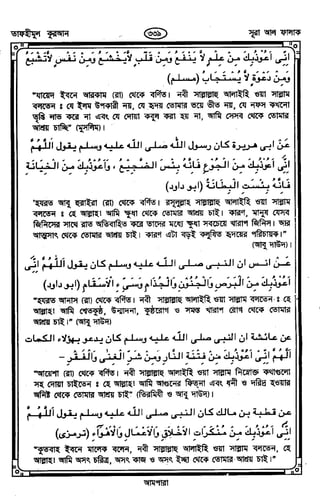 তাফহীমুল কুরআন ৩৩৯ সূরা আল ফালাক
اِنِّى اَعُوْذُبِكَ مِنْ عِلْمٍ لَا يَنْفَعُ وَمِنْ قَلْبٍ لَا يَخْشَعُ وَمِنْ نَفْسٍ لَا تَشْبَعُ
وَمِنْ دَعْوَةٍ لَا يُسْتَجَابُ (مسلم)
"যায়েদ ইবনে আরকাম (রা) থেকে বর্ণিত। নবী সাল্লাল্লাহু আলাইহি ওয়া সাল্লাম
বলতেন ঃ যে ইলম উপকারী নয়, যে হৃদয় তোমার ভয়ে ভীত নয়, যে নফস কখনো
তৃপ্তি লাভ করে না এবং যে দোয়া কবুল করা হয় না, আমি সেসব থেকে তোমার
আশ্রয় চাচ্ছি" (মুসলিম)।
عن ابى هريرة كان رسول الله صلى الله عليه وسلم يقول اَللّٰهُمَّ
اِنِّى اَعُوْذُبِكَ مِنَ الْجُوْعِ فَاِنَّهُ بِئْسَ الضَّجِيْعُ ، وَاَعُوْذُبِكَ مِنَ الْخِيَانَةِ
فَاِنَّهُ بِئْسَتِ الْبِطَانَةُ (ابو داود)
"হযরত আবু হুরাইরা (রা) থেকে বর্ণিত। রসূলুল্লাহ সাল্লাল্লাহু আলাইহি ওয়া সাল্লাম
বলতেন ঃ হে আল্লাহ! আমি ক্ষুধা থেকে তোমার আশ্রয় চাই। কারণ, মানুষ যেসব
জিনিসের সাথে রাত অতিবাহিত করে তাদের মধ্যে ক্ষুধা সবচেয়ে খারাপ জিনিস। আর
আত্মসাৎ থেকে তোমার আশ্রয় চাই। কারণ এটা বড়ই কলুষিত হৃদয়ের পরিচায়ক।"
(আবু দাউদ)।
عن انس ان النبى صلى الله عليه وسلم كان يقول اَللّٰهُمَّ اِنِّى
اَعُوْذُبِكَ مِنَ الْبَرَصِ وَالْجُنُوْنِ وَالْجُذَامِ وَسَيِّءِ الْاَسْقَامِ (ابو داود)
"হযরত আনাস (রা) থেকে বর্ণিত। নবী সাল্লাল্লাহু আলাইহি ওয়া সাল্লাম বলতেন ঃ হে
আল্লাহ! আমি শ্বেতকুষ্ঠ, উন্মাদনা, কুষ্ঠরোগ ও সমস্ত খারাপ রোগ থেকে তোমার
আশ্রয় চাই।" (আবু দাউদ)।
عن عائشة ان النبى صلى الله عليه وسلم كان يدعو بهؤلاء الكلمات
اَللّٰهُمَّ اِنِّى اَعُوْذُبِكَ مِنْ فِتْنَةِ النَّارِ وَمِنْ شَرِّ الْغِنٰى وَالْفَقْرِ -
"আয়েশা (রা) থেকে বর্ণিত। নবী সাল্লাল্লাহু আলাইহি ওয়া সাল্লাম নিম্নোক্ত কথাগুলো
সহ দোয়া চাইতেন ঃ হে আল্লাহ! আমি আগুনের ফিতনা এবং ধনী ও দরিদ্র হওয়ার
অনিষ্ট থেকে তোমার আশ্রয় চাই" (তিরমিযী ও আবু দাউদ)।
عن قطبة بن مالك كان النبى صلى الله عليه وسلم يقول اَللّٰهُمَّ
اِنِّى اَعُوْذُبِكَ مِنْ مُنْكَرَاتِ الْاَخْلَاقِ وَالْاَعْمَالِ وَالْاَهْوَاءِ (ترمذى)
"কুতবাহ ইবনে মালেক বলেন, নবী সাল্লাল্লাহু আলাইহি ওয়া সাল্লাম বলতেন, হে
আল্লাহ! আমি অসৎ চরিত্র, অসৎ কাজ ও অসৎ ইচ্ছা থেকে তোমার আশ্রয় চাই।"
আমপারা